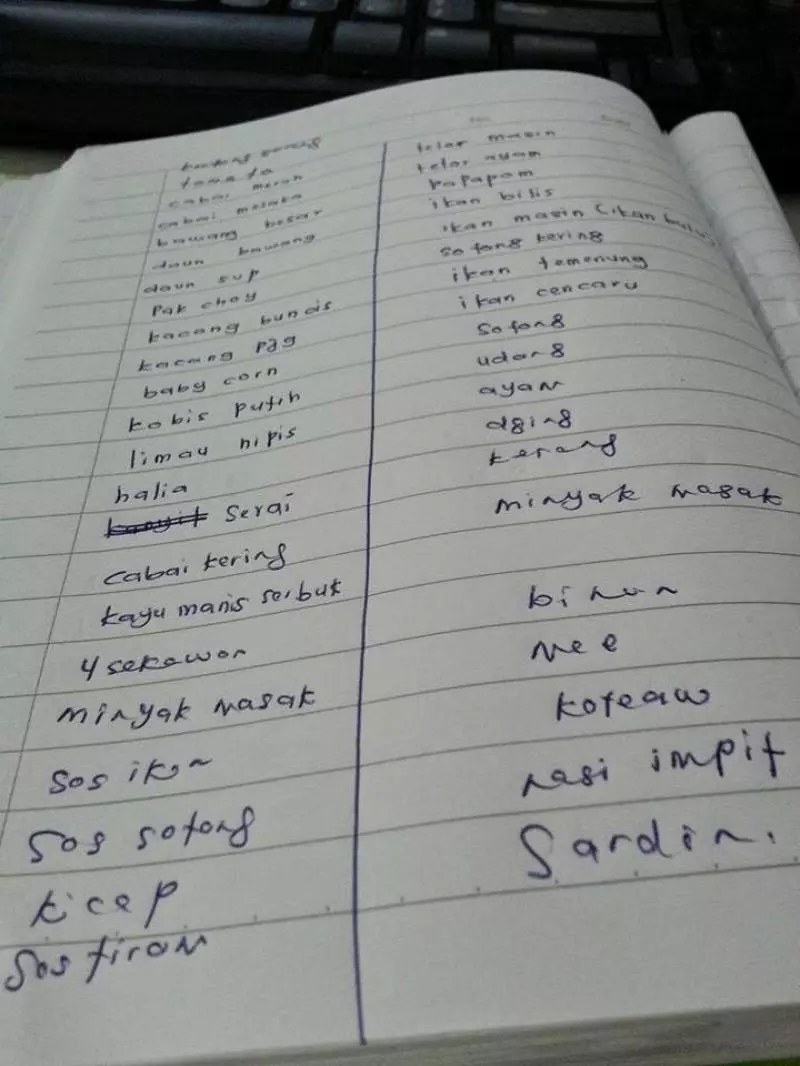 tomato
cabai merah
cabai melaka
bawang besar
daun bawang
daun sup
Pak choy
kacang buncis
kacang pag
baby corn
kobis putih
limau nipis
halia
serai
cabai kering
kayu manis serbuk
4 sekawan
minyak masak
sos ikan
sos sotong
kicap
sos tiram
telor masin
telor ayam
papapom
ikan bilis
ikan masin (ikan bulu)
sotong kering
ikan temenung
ikan cencaru
sotong
udang
ayam
dging
kerang
minyak masak
bihun
mee
koteaw
nasi impit
Sardin.